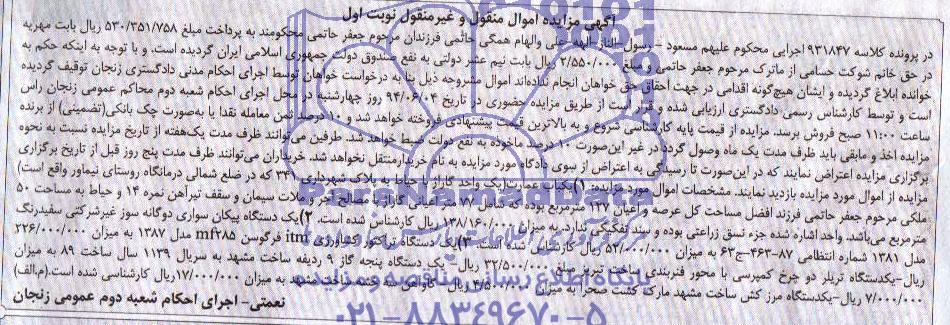 آگهی مزایده اموال منقول و غیرمنقول نوبت اول
در پرونده کلاسه ۹۳۱۸۴۷ اجرایی محکوم علیهم مسعود – رسول – الناز – الهه – علی والهام همگی حاتمی فرزندان مرحوم جعفر حاتمی محکومند به پرداخت مبلغ ۵۳۰/۳۵۱/۷۵۸ ریال بابت مهریه
در حق خانم شوکت حسامی از ماترک مرحوم جعفر حاتمی و مبلغ ۲/۵۵۰/۰۰۰ ریال بابت نیم عشر دولتی به نفع صندوق دولت جمهوری اسلامی ایران گردیده است. و با توجه به اینکه حکم به
خوانده ابلاغ گردیده و ایشان هیچگونه اقدامی در جهت احقاق حق خواهان انجام نداده‌اند اموال مشروحه ذیل بنا به درخواست خواهان توسط اجرای احکام مدنی دادگستری زنجان توقیف گردیده
است و توسط کارشناس رسمی دادگستری ارزیابی شده و قرار است از طریق مزایده حضوری در تاریخ ۹۴/۰۶/۰۴ روز چهارشنبه در محل اجرای احکام شعبه دوم محاکم عمومی زنجان راس
ساعت ۱۱:۰۰ صبح فروش برسد. مزایده از قیمت پایه کارشناسی شروع و به بالاترین قیمت پیشنهادی فروخته خواهد شد و ۱۰ درصد ثمن معامله نقدا یا به‌صورت چک بانکی(تضمینی) از برنده
مزایده اخذ و مابقی باید ظرف مدت یک ماه وصول گردد در غیر این‌صورت ۱۰ درصد ماخوذه به نفع دولت ضبط خواهد شد. طرفین می‌توانند ظرف مدت یک‌هفته از تاریخ مزایده نسبت به نحوه
برگزاری مزایده اعتراض نمایند که در این‌صورت تا رسیدگی به اعتراض از سوی دادگاه مورد مزایده به نام خریدار منتقل نخواهد شد. خریداران می‌توانند ظرف مدت پنج روز قبل از تاریخ برگزاری
مزایده از اموال مورد مزایده بازدید نمایند. مشخصات اموال مورد مزایده: ۱)یکباب عمارت(یک واحد گاراژ با حیاط به پلاک شهرداری ۳۴۱ که در ضلع شمالی درمانگاه روستای نیماور واقع است)
ملکی مرحوم جعفر حاتمی فرزند افضل مساحت کل عرصه و اعیان ۱۲۷ مترمربع بوده که شامل ۷۷ متر اعیانی گاراژ با مصالح آجر و ملات سیمان و سقف تیرآهن نمره ۱۴ و حیاط به مساحت ۵۰
مترمربع می‌باشد. واحد اشاره شده جزء نسق زراعتی بوده و سند تفکیکی ندارد. به میزان ۱۳۸/۱۶۰/۰۰۰ ریال کارشناس شده است. ۲)یک دستگاه پیکان سواری دوگانه سوز غیرشرکتی سفیدرنگ
مدل ۱۳۸۱ شماره انتظامی ۸۷-۴۶۳ج۶۳ به میزان ۵۲/۰۰۰/۰۰۰ ریال کارشناسی شده است. ۳)یک دستگاه تراکتور کشاورزی itm فرگوسن mf۲۸۵ مدل ۱۳۸۷ به میزان ۲۲۶/۰۰۰/۰۰۰
ریال-یکدستگاه تریلر دو چرخ کمپرسی با محور فنربندی ساخت تبریز مبلغ ۳۲/۵۰۰/۰۰۰ ریال – یک دستگاه پنجه گاز ۹ ردیفه ساخت مشهد به سریال ۱۱۳۹ سال ساخت ۸۹ به میزان
۷/۰۰۰/۰۰۰ ریال-یکدستگاه مرز کش ساخت مشهد مارک کشت صحرا به میزان ۴/۵۰۰/۰۰۰ ریال- گاوآهن سه ساخت مشهد به میزان ۱۷/۰۰۰/۰۰۰ ریال کارشناسی شده است.(م‌الف)
نعمتی- اجرای احکام شعبه دوم عمومی زنجان
پایگاه اطلاع رسانی مناقصه و مزایده
۰۲۱-۸۸۳۴۹۶۷۰-۵